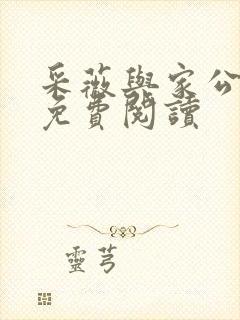 采薇與家公
免費閱讀
靈芎